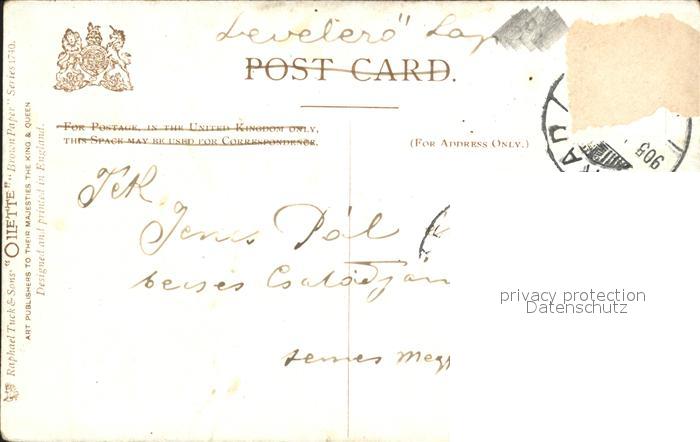 Levelező Lap
POST CARD.
FOR POSTAGE, IN THE UNITED KINGDOM ONLY,
THIS SPACE MAY BE USED FOR CORRESPONDENCE.
(FOR ADDRESS ONLY.)
905
Raphael Tuck & Sons' "OILETTE" "Brown Paper" Series 1740.
ART PUBLISHERS TO THEIR MAJESTIES THE KING & QUEEN
Designed and printed in England.
Tek.
Jenes Pál
becses Családján
temes Megy
privacy protection
Datenschutz